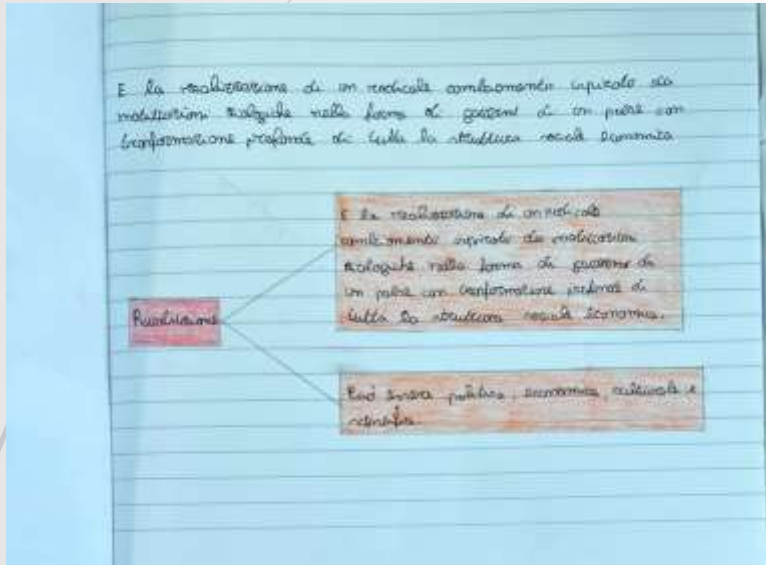 E la realizzazione di un radicale cambiamento ispirato da
motivazioni ideologiche nella forma di governo di un paese con
trasformazione profonda di tutta la struttura sociale economica
E la realizzazione di un radicale
cambiamento ispirato da motivazioni
ideologiche nella forma di governo di
un paese con trasformazione profonda di
tutta la struttura sociale economica.
Rivoluzione
Può essere politica, economica, culturale e
scientifica.